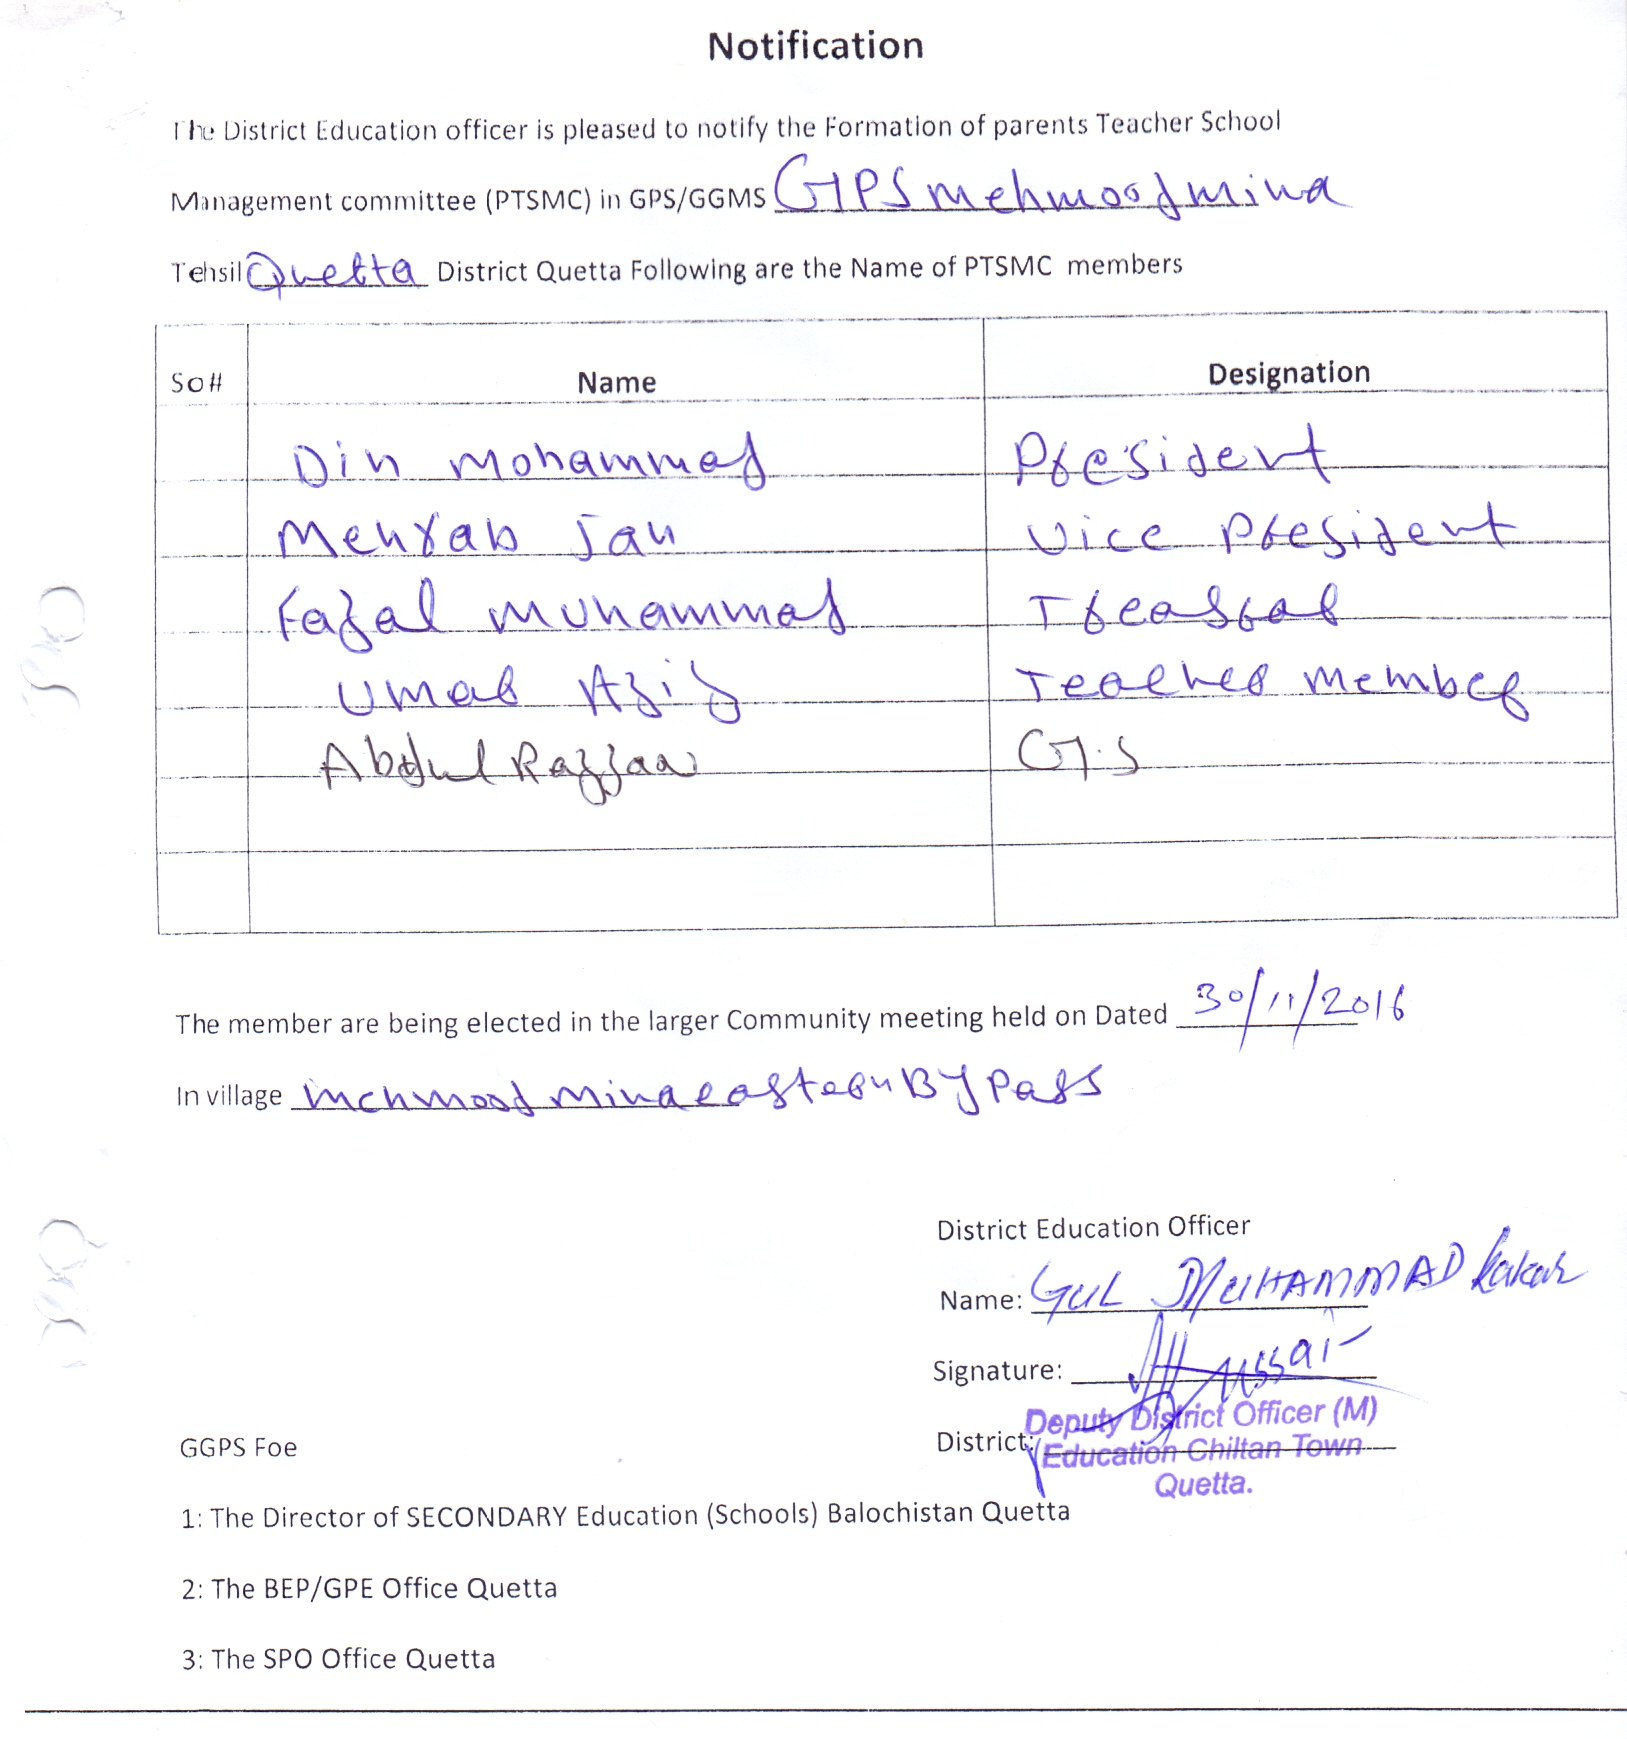 Notification
The District Education officer is pleased to notify the Formation of parents Teacher School
Management committee (PTSMC) in GPS/GGMS GPS mehmood mina
Tehsil Quetta District Quetta Following are the Name of PTSMC members
So# Name Designation
Din Mohammad President
Mehrab Jan Vice President
Fazal Muhammad Treasrar
Umar Aziz Teacher member
Abdul Razzaq G.S
The member are being elected in the larger Community meeting held on Dated 30/11/2016
In village mehmood mina eastern By Pass
District Education Officer
Name: GUL MUHAMMAD kakar
Signature:
Deputy District Officer (M)
District: Education Chiltan Town
Quetta.
GGPS Foe
1: The Director of SECONDARY Education (Schools) Balochistan Quetta
2: The BEP/GPE Office Quetta
3: The SPO Office Quetta